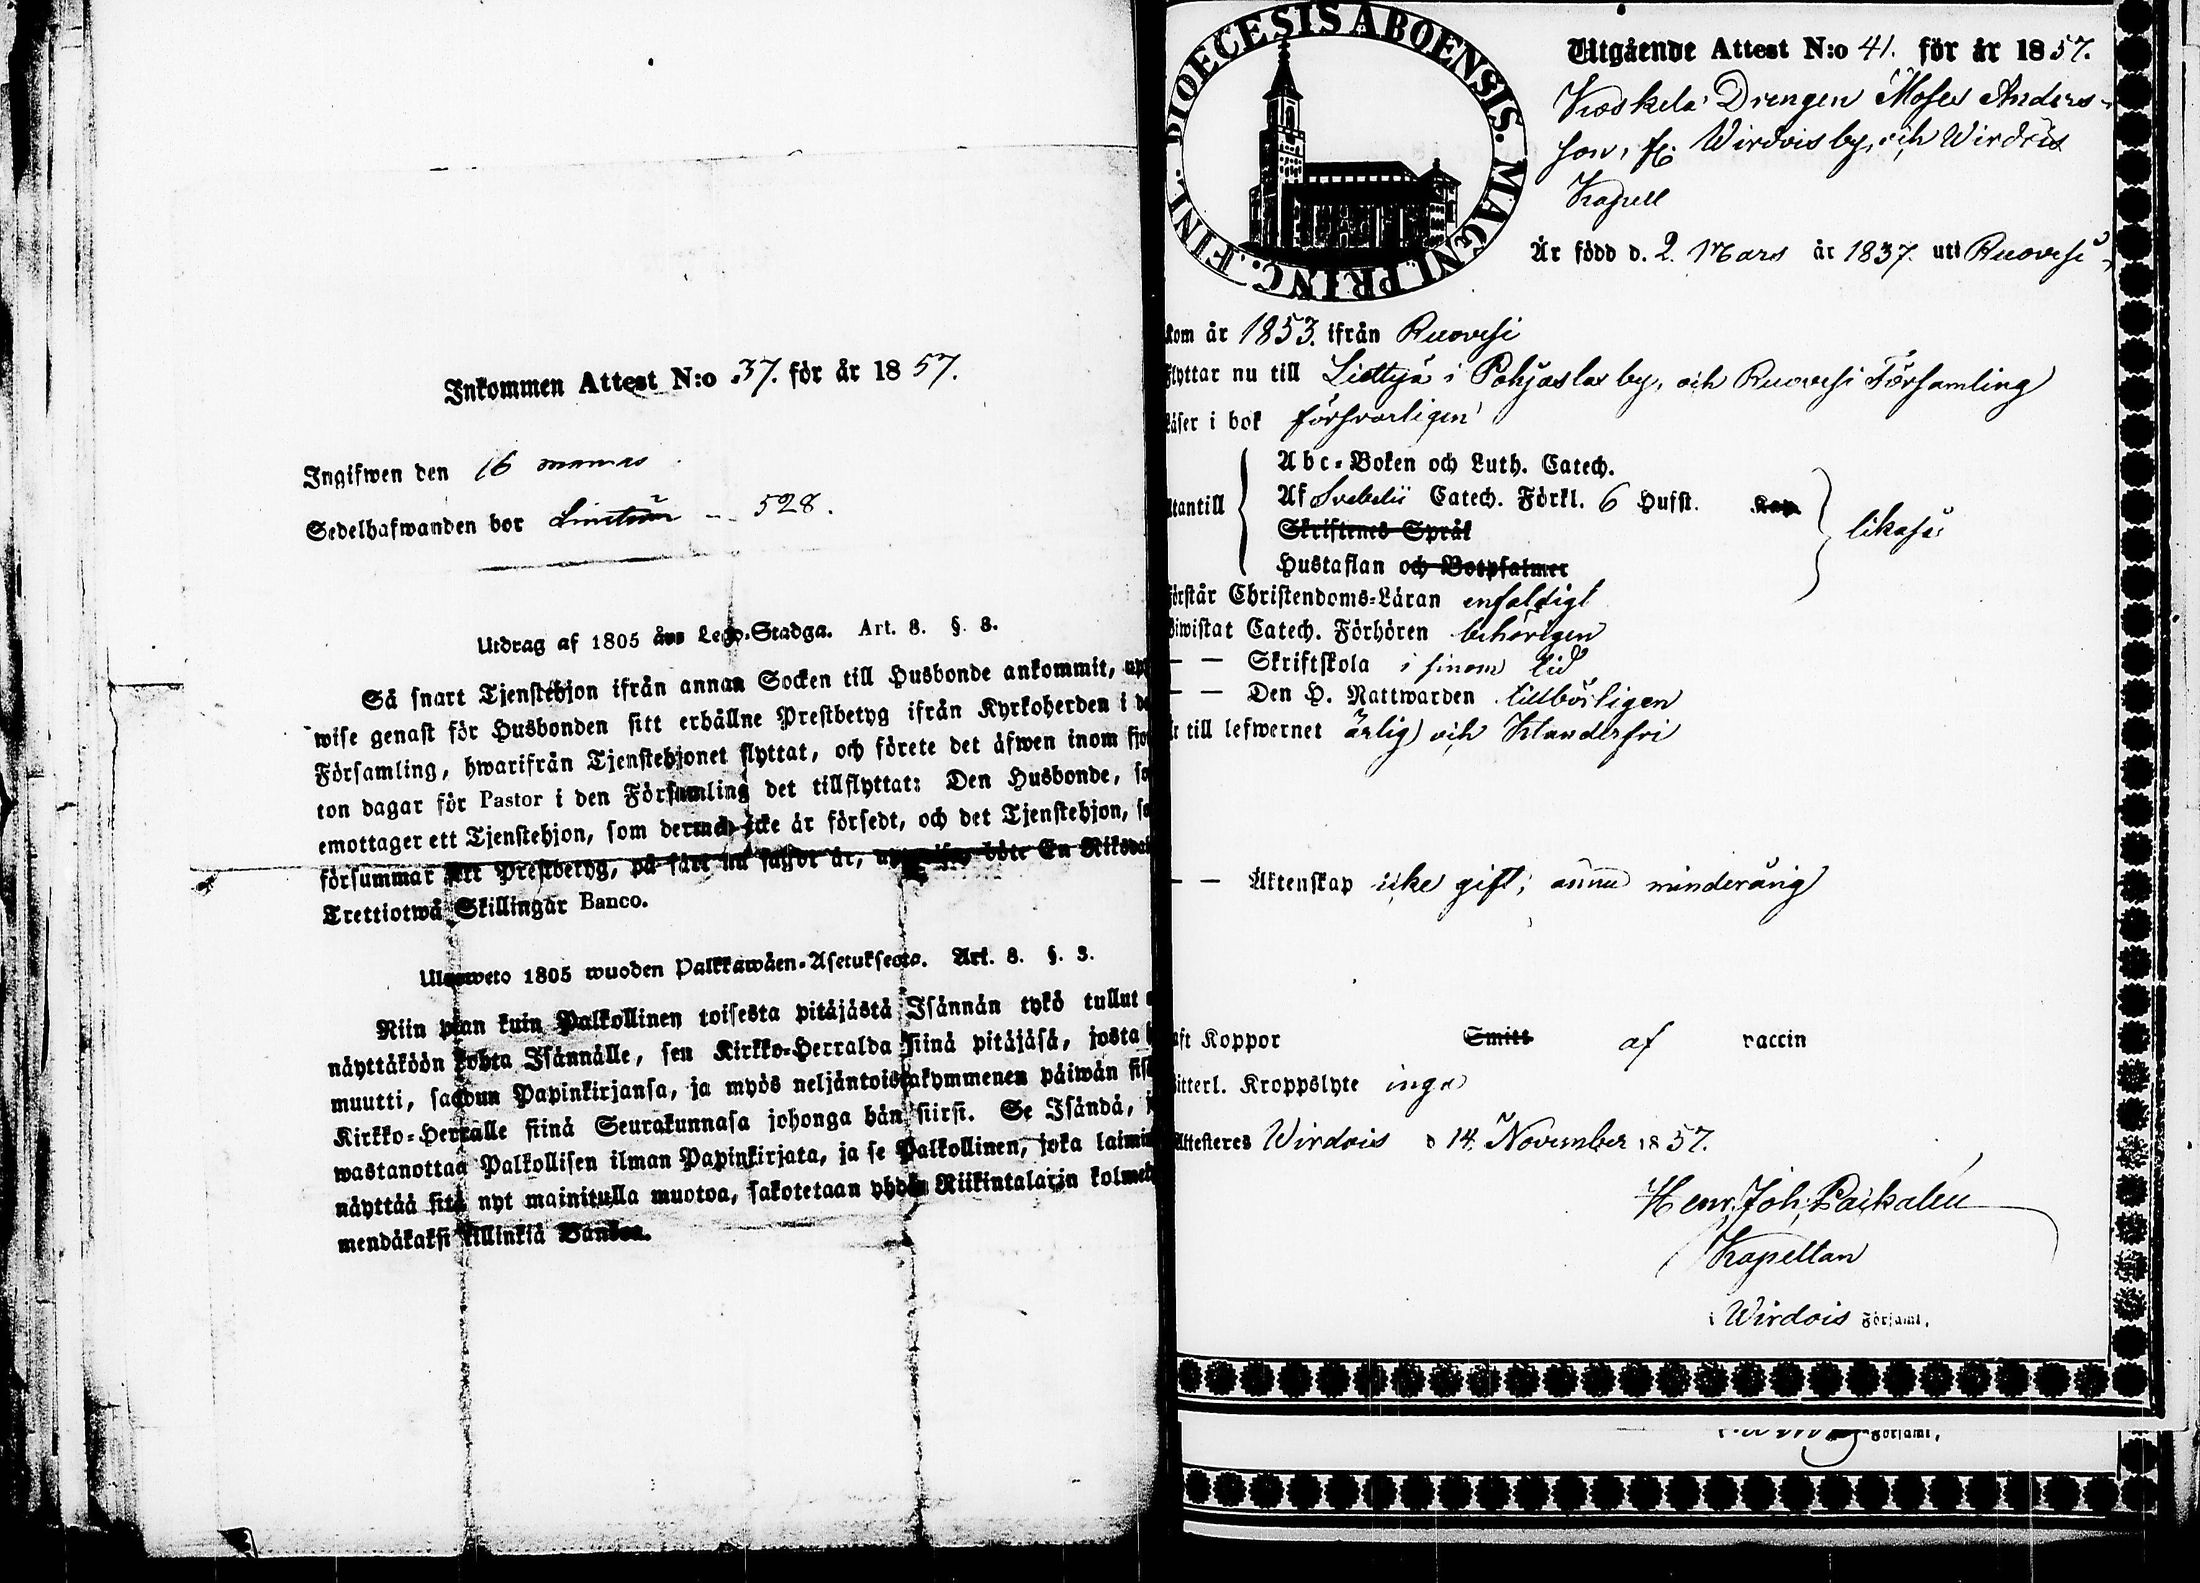 Inkommen Attest N:o 37. för år 1857.
Ingifwen den 16
Sedelhafwanden bor – 528.
Utdrag af 1805 års Lego-Stadga. Art. 8. §. 3.
Så snart Tjenstehjon ifrån annan Socken till Husbonde ankommit,
wise genast för Husbonden sitt erhållne Prestbetyg ifrån Kyrkoherden i
Församling, hwarifrån Tjenstehjonet flyttat, och förete det äfwen inom
ton dagar för Pastor i den Församling det tillflyttat: Den Husbonde,
emottager ett Tjenstehjon, som dermed icke är försedt, och det Tjenstehjon,
försummar Prestbetyg, på sätt nu sagdt är, böte En
Trettiotwå Skillingar Banco.
Ulosweto 1805 wuoden Palkkawäen-Asetuksesta. Art. 8. §. 3.
Niin pian kuin Palkollinen toisesta pitäjästä Isännän tykö tullut
näyttäköön kohta Isännälle, sen Kirkko-Herralda siinä pitäjäsä, josta
muutti, saadun Papinkirjansa, ja myös neljäntoistakymmenen päiwän
Kirkko-Herralle siinä Seurakunnasa johonga hän siirsi. Se Isändä,
wastanottaa Palkollisen ilman Papinkirjata, ja se Palkollinen, joka
näyttää sitä nyt mainitulla muotoa, sakotetaan yhden Riikintalarin
mendäkaksi killinkiä Bankoa.
DIOECESIS ABOENSIS. MAGNI PRINC. FINL.
Utgående Attest N:o 41. för år 1857.
Koskela Drengen Moses Anders-
son, fr. Wirdois by, och Wirdois
Kapell
Är född d. 2. Mars år 1837. uti Ruovesi,
kom år 1853. ifrån Ruovesi
flyttar nu till Liettyä i Pohjaslax by, och Ruovesi Församling
Läser i bok försvarligen
Utantill
Abc-Boken och Luth. Catech.
Af Svebelii Catech. Förkl. 6 Hufst. Kap.
Skriftenes Språk
Hustaflan och Botpsalmer
likaså
förstår Christendoms-Läran enfaldigt
Biwistat Catech. Förhören behörigen
— — Skriftskola i sinom tid
— — Den H. Nattwarden tillbörligen
Är till lefwernet ärlig och Klanderfri
— — Äktenskap icke gift; ännu minderårig
Haft Koppor Smitt af vaccin
Witterl. Kroppslyte inga
Attesteres Wirdois d 14. November 1857.
Henr. Joh. Paikalén
Kapellan
i Wirdois Församl.
Församl.